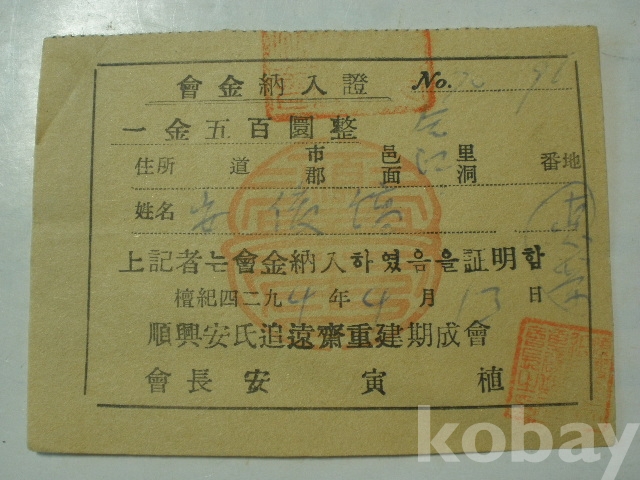 會金納入證 No.
一金五百圜整
住所 道 市郡 邑面 里洞 番地
姓名 安
上記者는會金納入하였음을証明함
檀紀四二九4年4月13日
順興安氏追遠齋重建期成會
會長安寅植
kobay